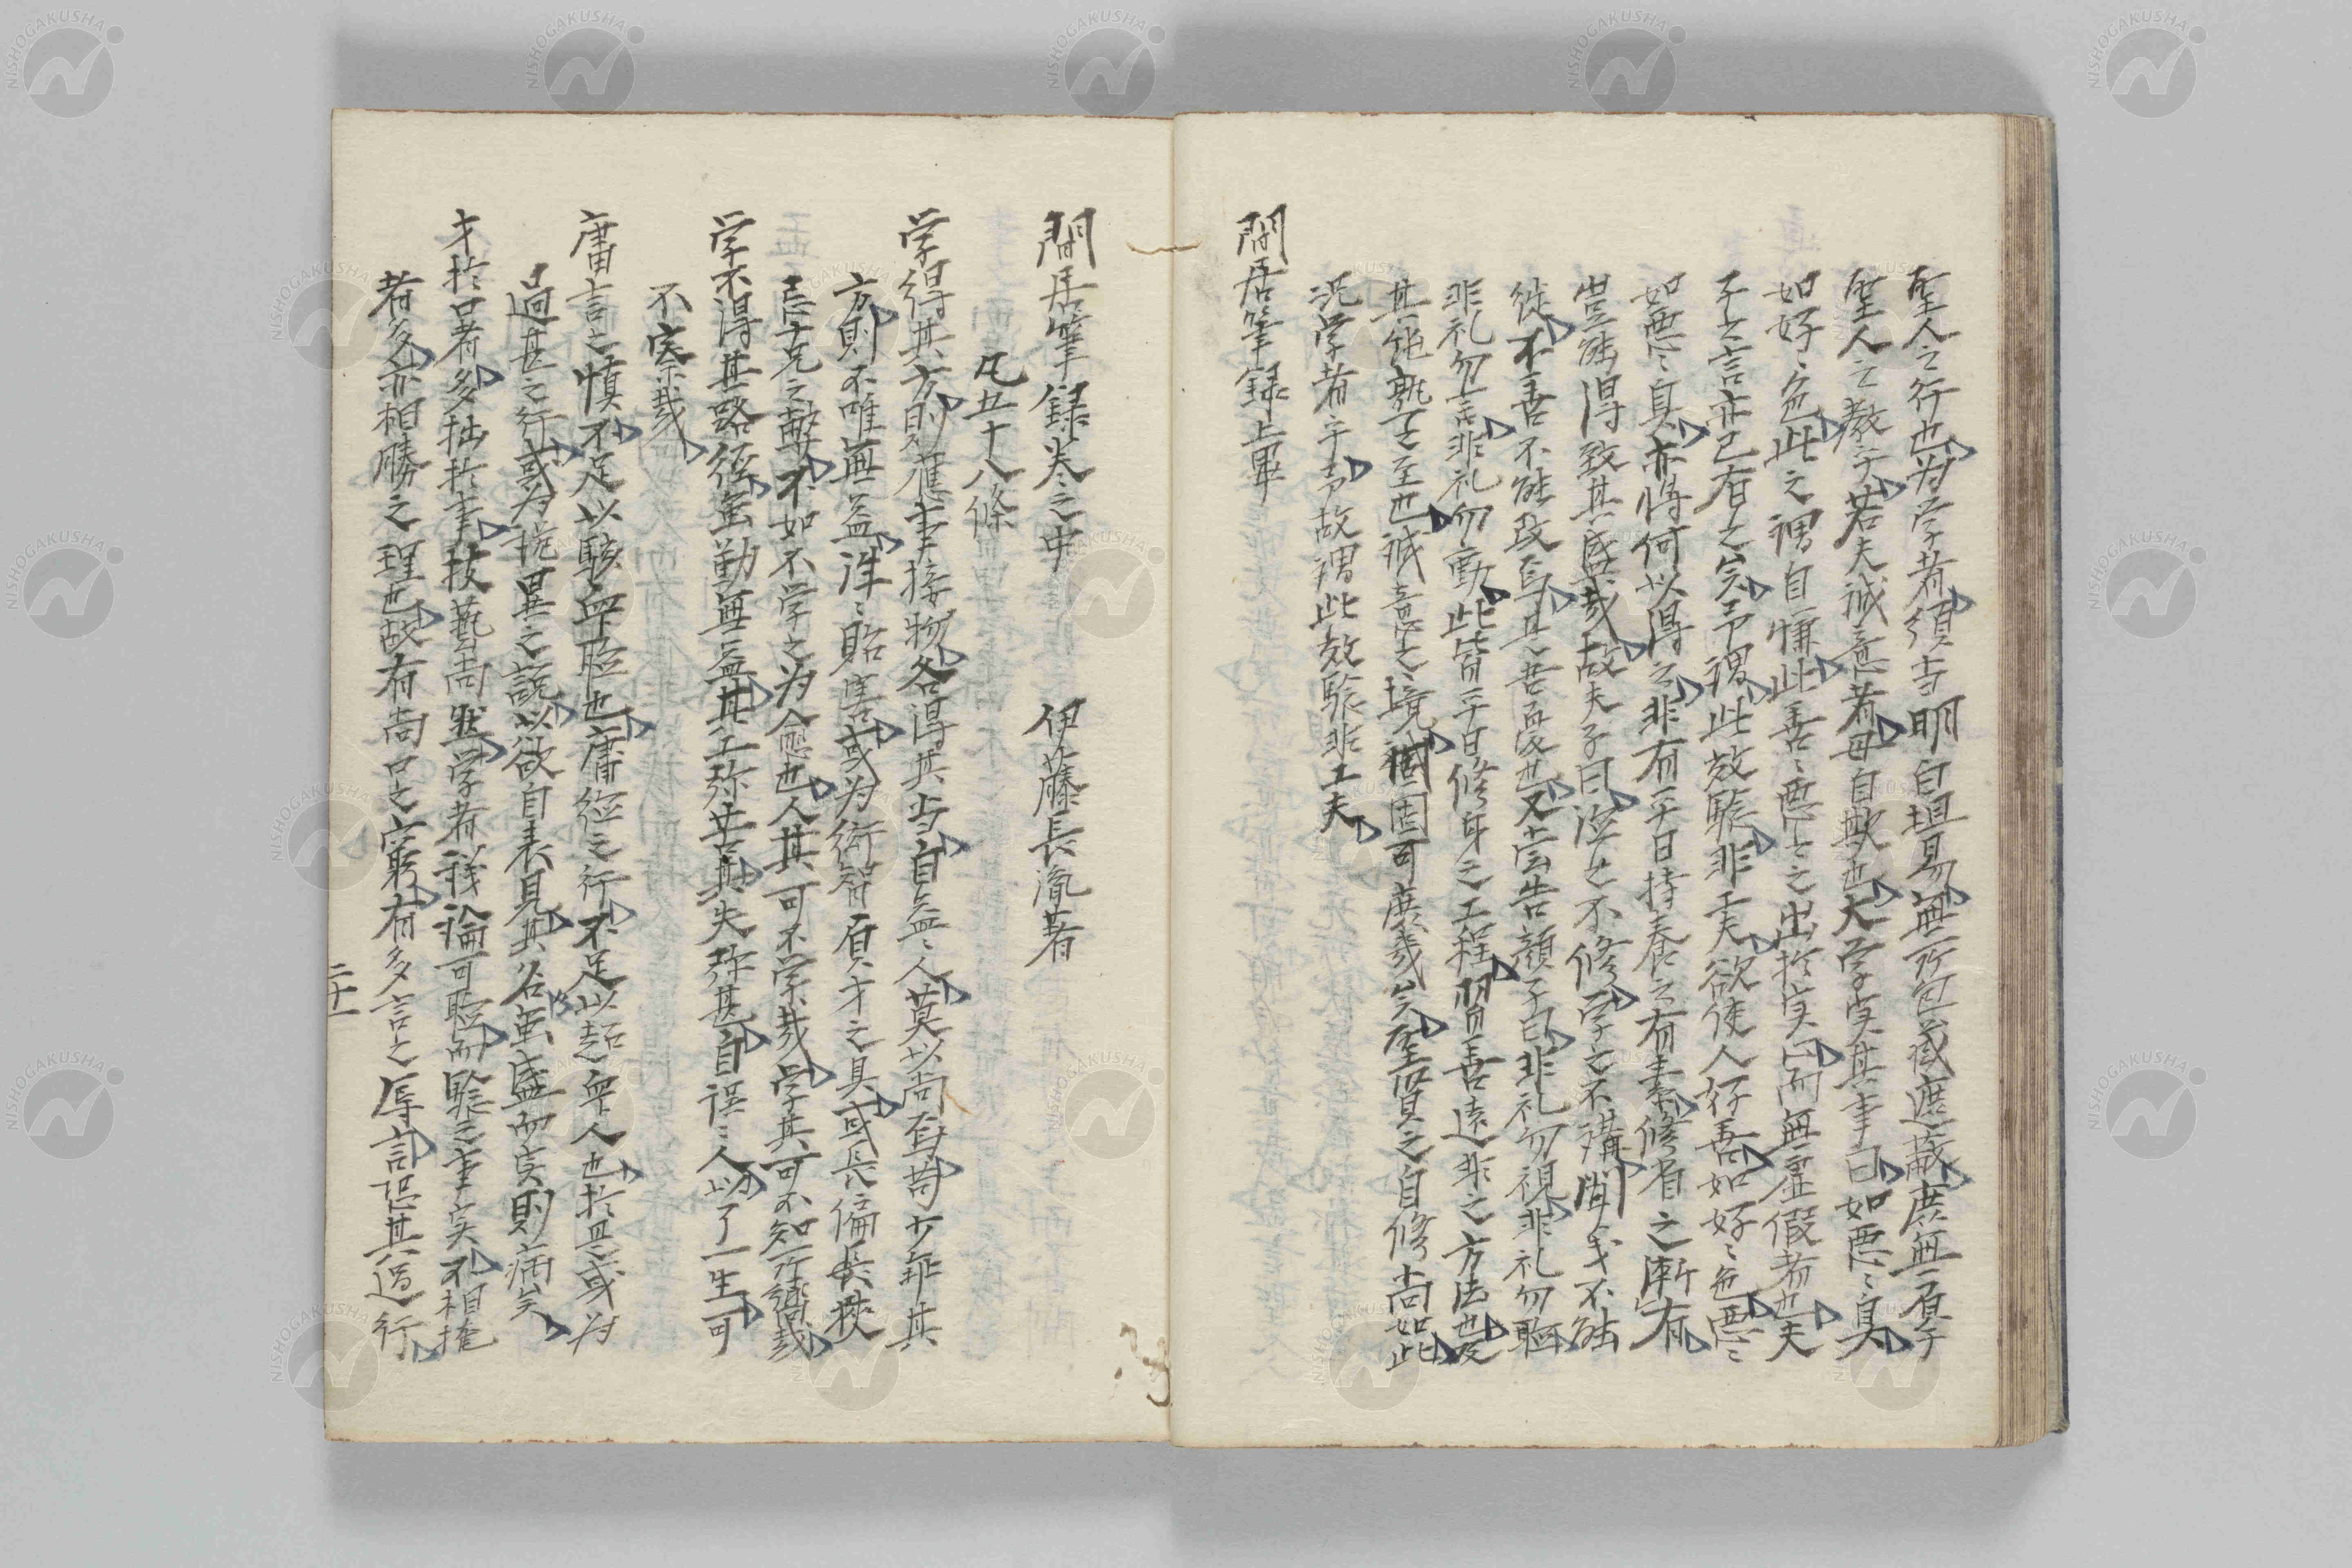 聖人之行也为学者須占明白坦易無所包蔵遮蔽庶無負于
聖人之教于若夫誠意者毋自欺也大学実其事曰如悪〻臭
如好〻色此之謂自慊此善〻悪〻之出於実心而無虚假者也夫
子之言亦已有之矣予謂此効驗非工夫欲使人好善如好〻色悪〻
如悪〻臭亦将何以得之非有平日持養之有素修省之漸有
豈能得致其盛哉故夫子曰涇之不修学之不講聞義不能
徙不善不能改是其吾憂也又嘗告顔子曰非礼勿視非礼勿聴
非礼勿言非礼勿動此皆平日修身之工程習善遠非之方法也及
其能熟之至也誠意之境固可庶幾矣聖賢之自修尚如此
况学者乎予故謂此効驗非工夫
間居筆録上畢
間居筆録巻之中 伊藤長胤著
凡五十八條
学得其方則應事接物各得其当自益〻人莫以尚焉苟少乖其
方則不唯無益洋〻貽害或为衒智負才之具或長偏長狹
忌克之弊不如不学之为愈也人其可不学哉学其可不知所慎哉
学不得其路徑虽勤無益其工弥苦其失弥甚自误〻人以了一生可
不察哉
庸言之慎不足以駭衆聴也庸經之行不足以超衆人也於是或为
過甚之行或为詭異之説以欲自表見其名虽盛而実則病矣
才於口者多拙於事技藝尚然学者議論可聴而驗之事実不相掩
者多亦相勝之理也故有尚口之窮有多言之辱記其過行
二十一